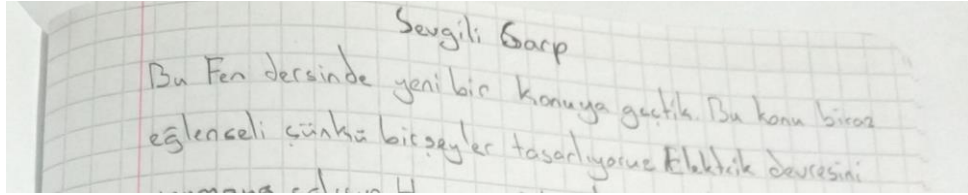 Sevgili Garp
Bu Fen dersinde yeni bir konuya geçtik. Bu konu biraz
eğlenceli çünkü birşeyler tasarlıyoruz Elektrik devresini